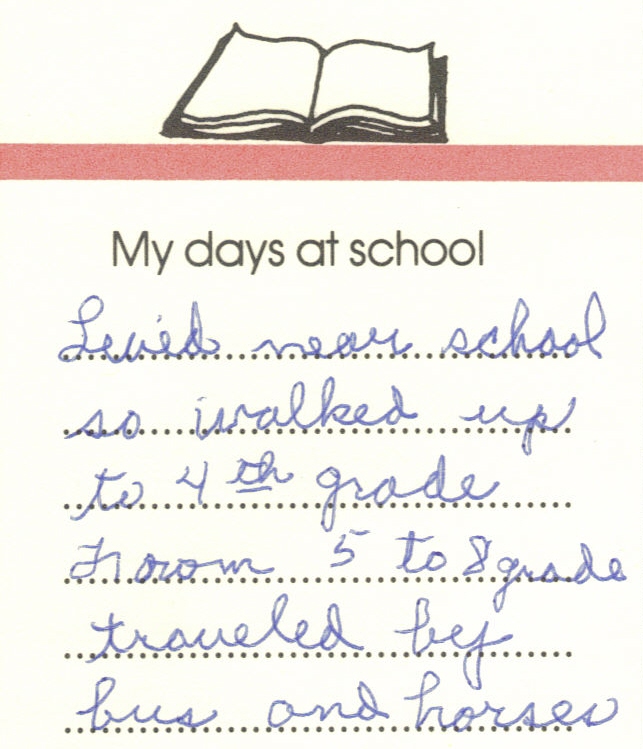 My days at school
Lived near school
so walked up
to 4th grade
From 5 to 8 grade
traveled by
bus and horses